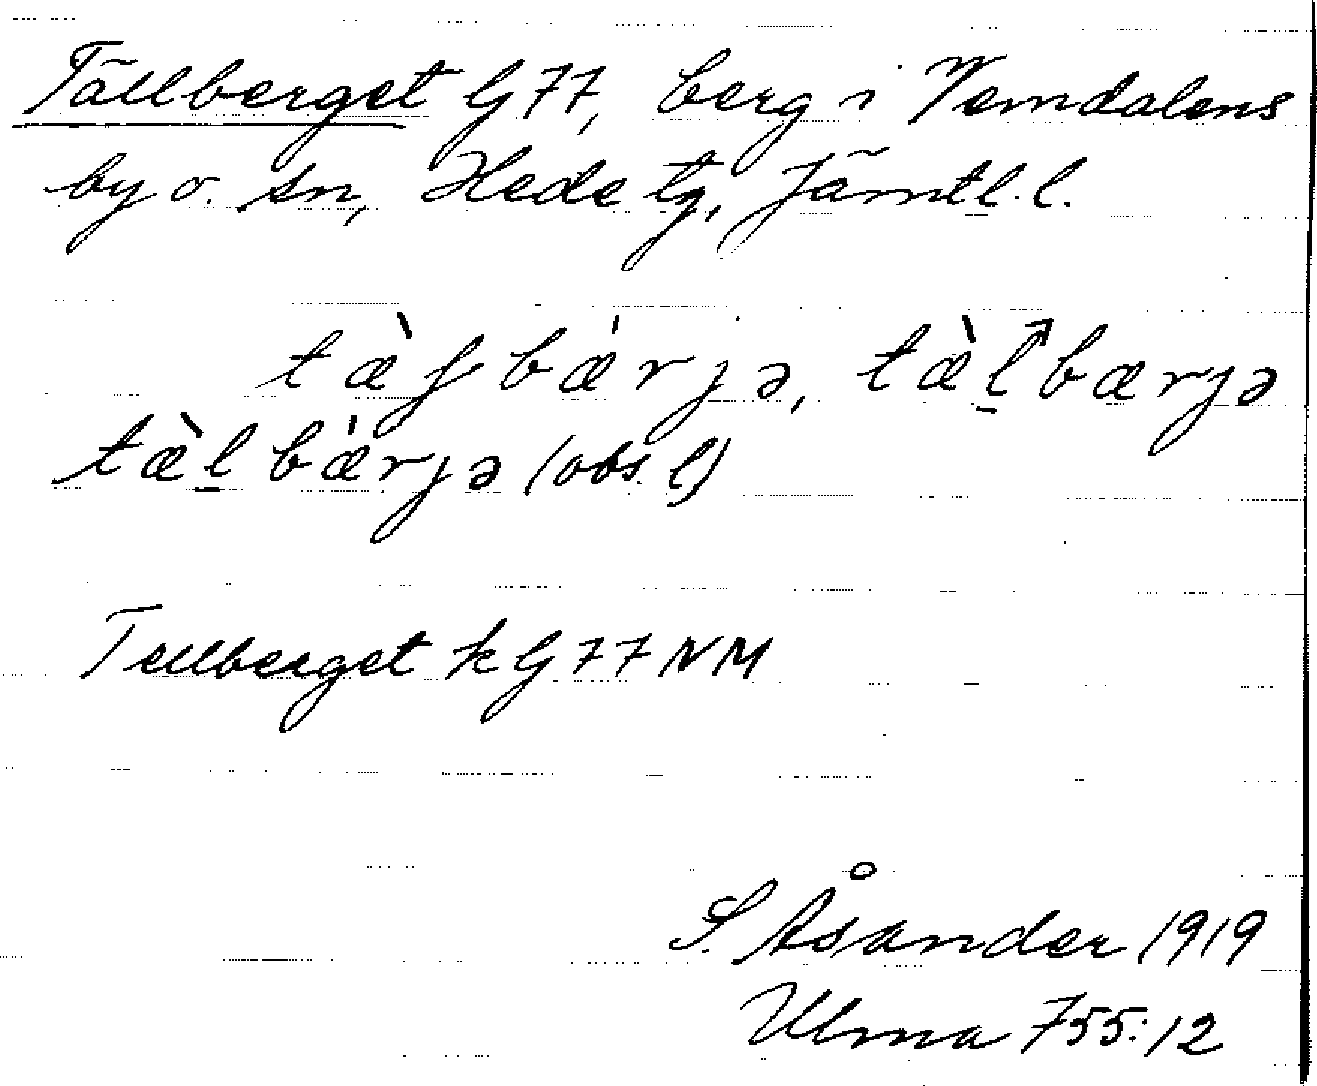 Tällberget G 77, berg i Vemdalens
by o. sn, Hede tg, Jämtl. l.
tæ̀ʃbæ̍rjə, tæ̀l̠bærjə
tæ̀l̠bæ̍rjə (obs. l)
Tellberget k G 77 NM
S. Åsander 1919
Ulma 755:12